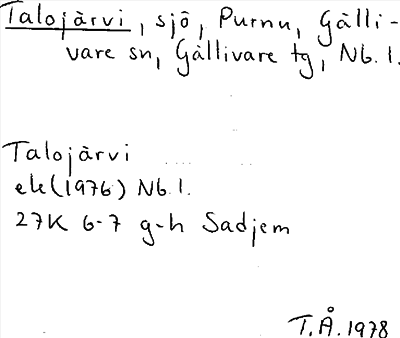 Talojärvi, sjö, Purnu, Gälli-
vare sn, Gällivare tg, Nb. l.
Talojärvi
ek(1976) Nb. l.
27K 6-7 g-h Sadjem
T.Å. 1978